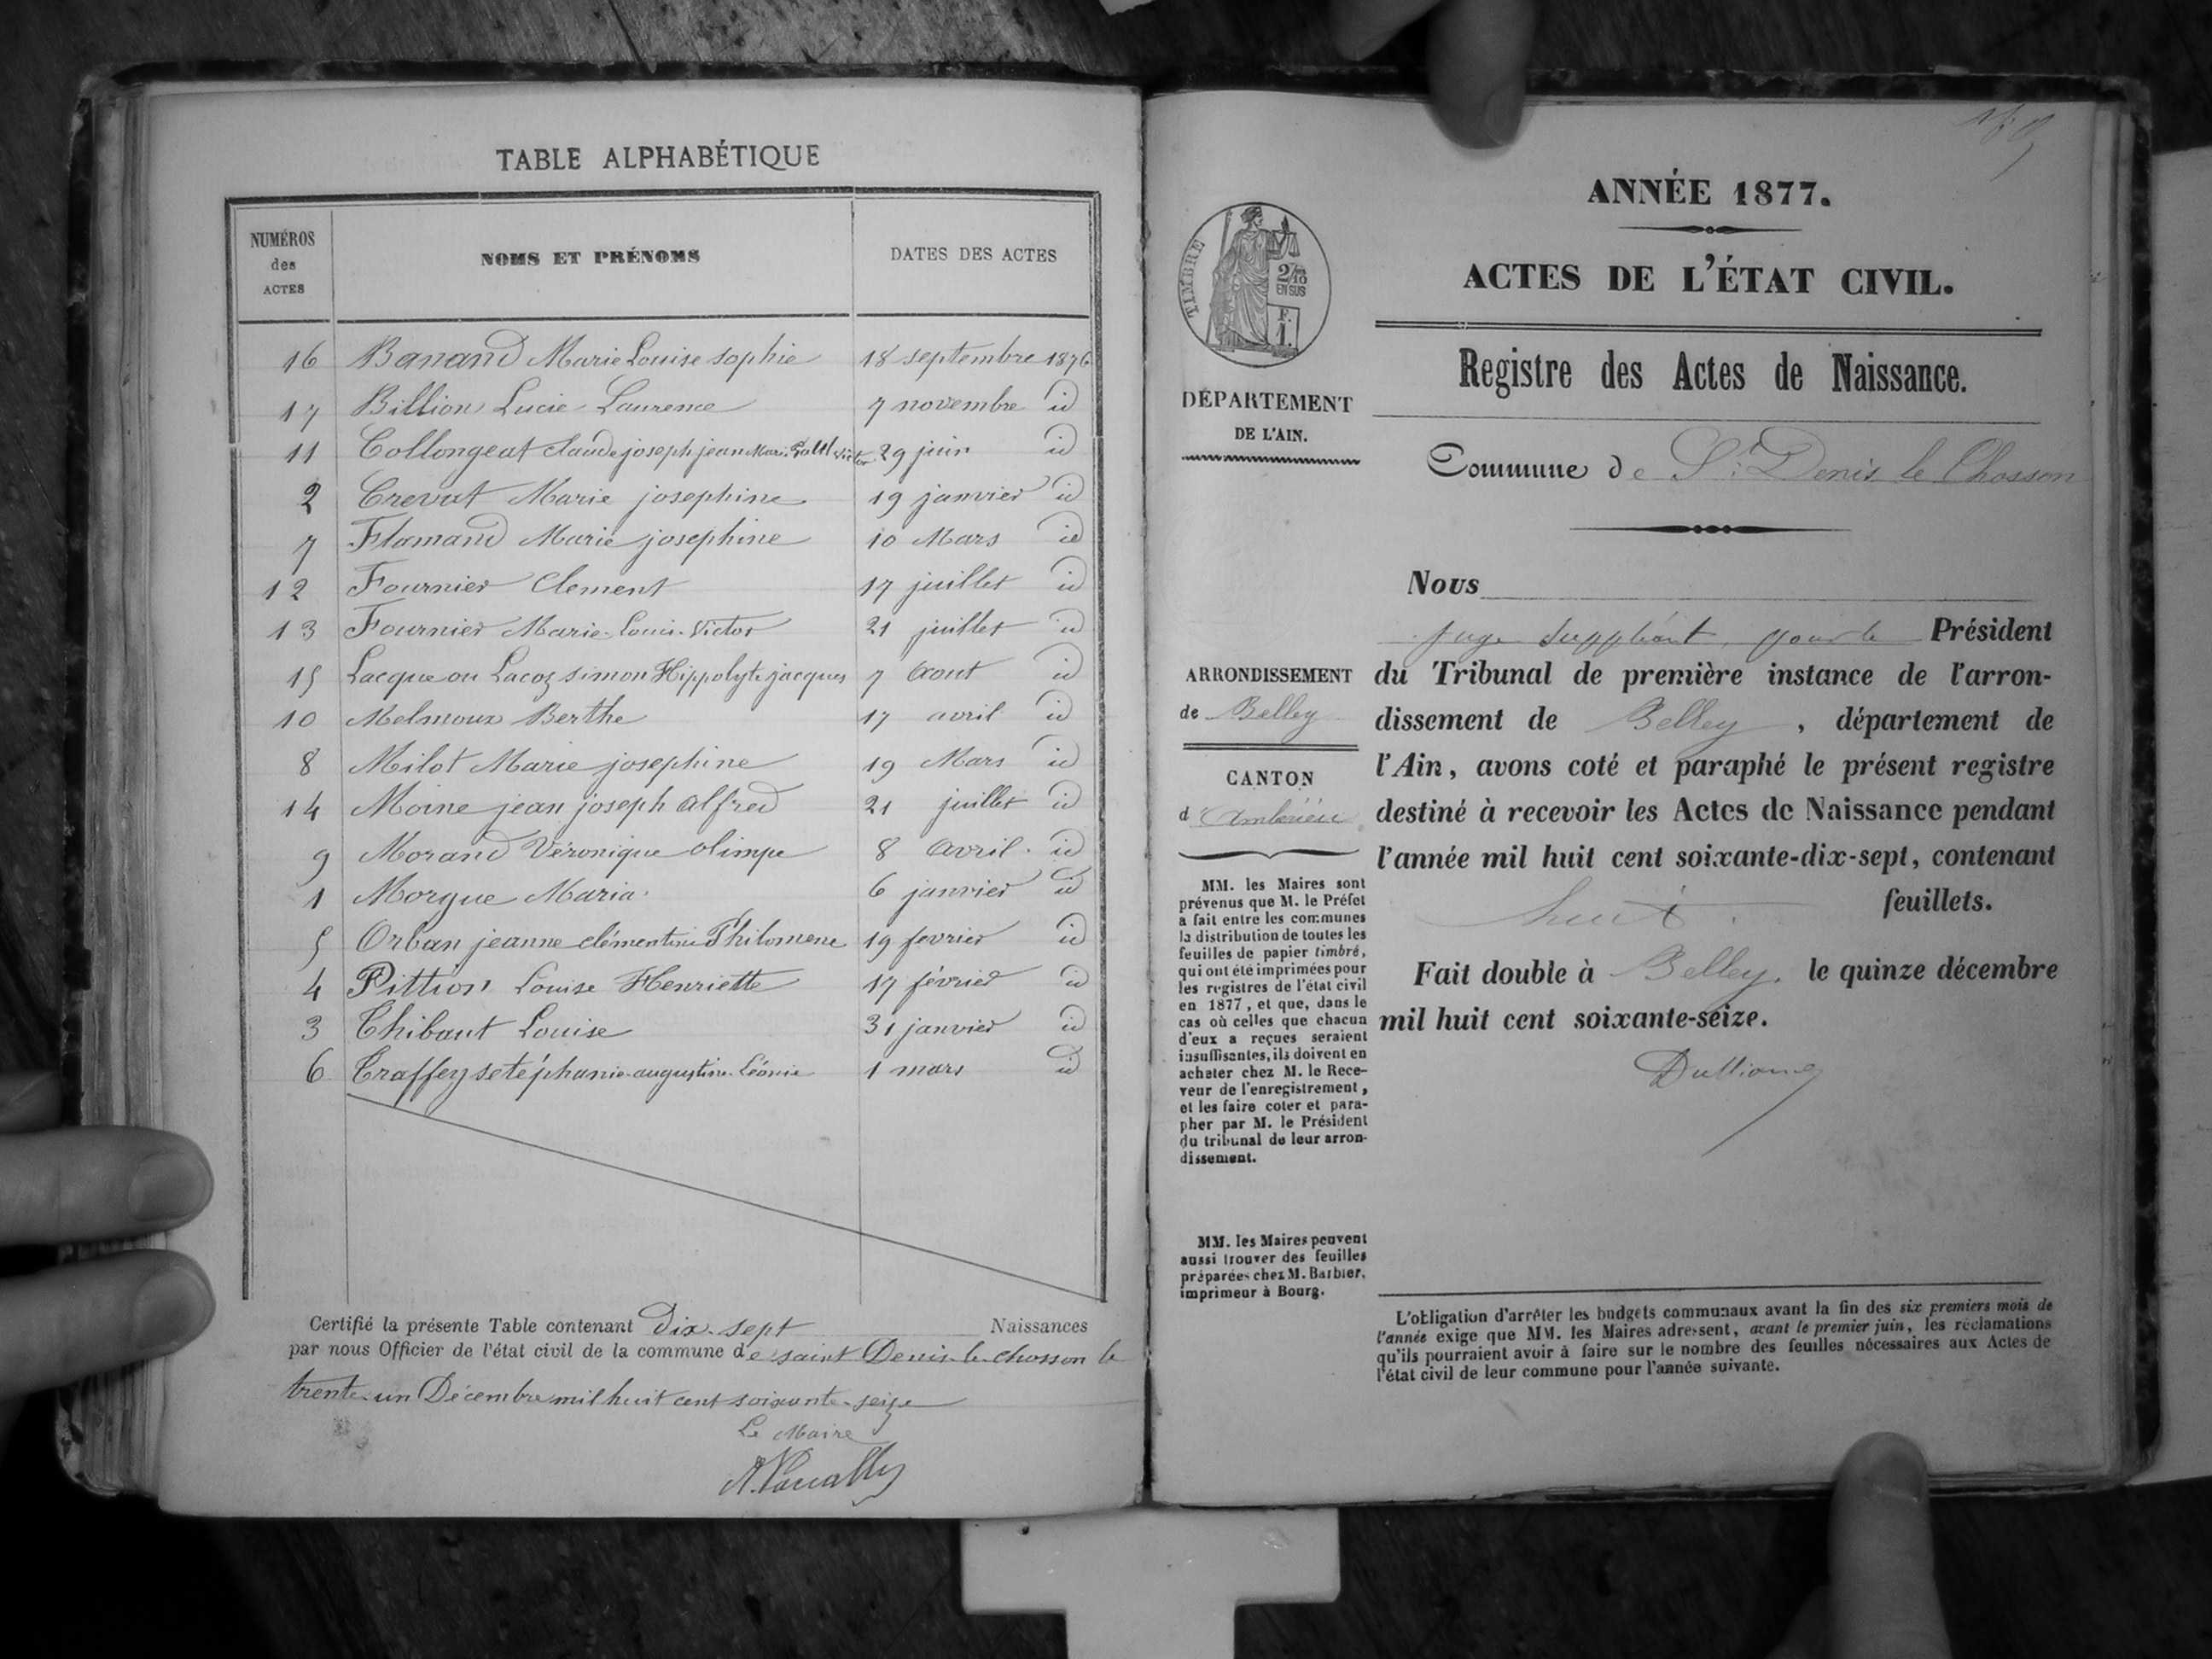 TABLE ALPHABÉTIQUE
NUMÉROS des ACTES NOMS ET PRÉNOMS DATES DES ACTES
16 Banand Marie Louise sophie 18 septembre 1876
17 Billion Lucie Laurence 7 novembre id
11 Collongeat Claude joseph jean Marie Victor 29 juin id
2 Crevat Marie josephine 19 janvier id
7 Flamand Marie josephine 10 Mars id
12 Fournier Clement 17 juillet id
13 Fournier Marie Louis Victor 21 juillet id
15 Lacque ou Lacoz simon Hippolyte jacques 7 Aout id
10 Melmoux Berthe 17 avril id
8 Milot Marie josephine 19 Mars id
14 Moine jean joseph alfred 21 juillet id
9 Morand Véronique olimpe 8 Avril id
1 Morgue Maria 6 janvier id
5 Orban jeanne clémentine Philomene 19 fevrier id
4 Pittion Louise Henriette 17 février id
3 Thibaut Louise 31 janvier id
6 Traffey setéphanie augustine Léonie 1 mars id
Certifié la présente Table contenant Dix-sept Naissances
par nous Officier de l'état civil de la commune de saint Denis le chosson le
trente-un Décembre mil huit cent soixante-seize
Le Maire
ANNÉE 1877.
ACTES DE L'ÉTAT CIVIL.
Registre des Actes de Naissance.
TIMBRE
2/10
EN SUS
F.
1.
DÉPARTEMENT
DE L'AIN.
Commune de St Denis le Chosson
Nous
juge suppléant, pour le Président
ARRONDISSEMENT
de Belley
CANTON
d'Ambérieu
du Tribunal de première instance de l'arron-
dissement de Belley, département de
l'Ain, avons coté et paraphé le présent registre
destiné à recevoir les Actes de Naissance pendant
l'année mil huit cent soixante-dix-sept, contenant
huit feuillets.
Fait double à Belley, le quinze décembre
mil huit cent soixante-seize.
MM. les Maires sont
prévenus que M. le Préfet
a fait entre les communes
la distribution de toutes les
feuilles de papier timbré,
qui ont été imprimées pour
les registres de l'état civil
en 1877, et que, dans le
cas où celles que chacun
d'eux a reçues seraient
insuffisantes, ils doivent en
acheter chez M. le Rece-
veur de l'enregistrement,
et les faire coter et para-
pher par M. le Président
du tribunal de leur arron-
dissement.
MM. les Maires peuvent
aussi trouver des feuilles
préparées chez M. Barbier,
imprimeur à Bourg.
L'obligation d'arrêter les budgets communaux avant la fin des six premiers mois de
l'année exige que MM. les Maires adressent, avant le premier juin, les réclamations
qu'ils pourraient avoir à faire sur le nombre des feuilles nécessaires aux Actes de
l'état civil de leur commune pour l'année suivante.